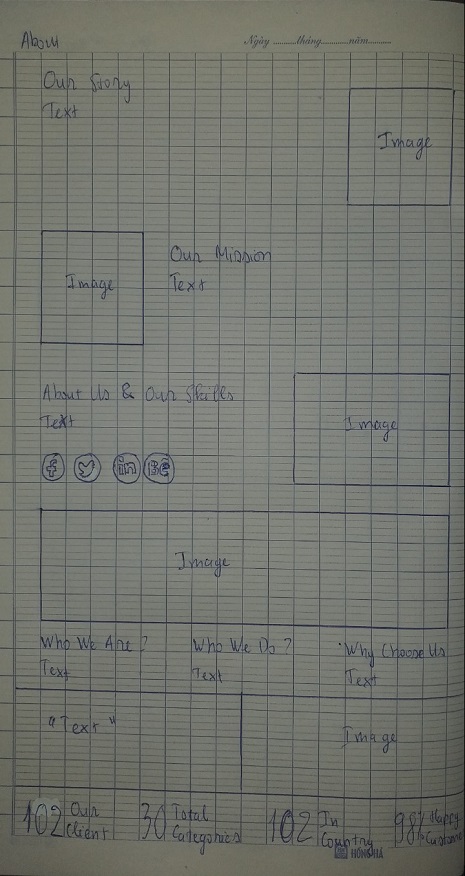 About
Ngày ............tháng............năm............
Our Story
Text
Image
Image
Our Mission
Text
About Us & Our Skills
Text
Image
f in Bē
Image
Who We Are?
Text
Who We Do?
Text
Why Choose Us
Text
"Text"
Image
102 Our
Client
30 Total
Categories
102 In
Country
98% Happy
Custome
HỒNG HÀ